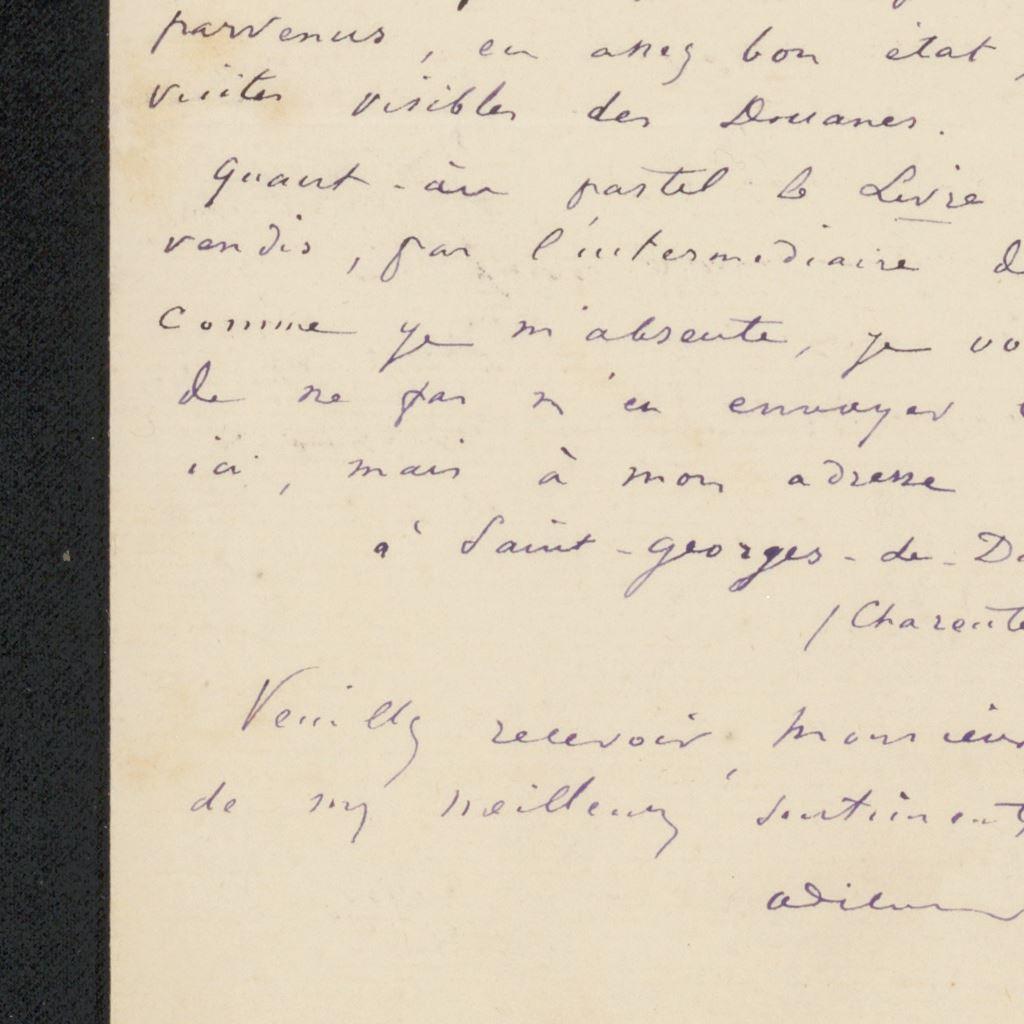 parvenus, en assez bon état,
visites visibles des Douanes.
Quant-au pastel le Livre
vendis, par l'intermédiaire d
Comme je m'absente, je vo
de ne pas m'en envoyer
ici, mais à mon adresse
à Saint-Georges-de-D
/Charente
Veuillez recevoir, Monsieur
de mes meilleurs sentiments